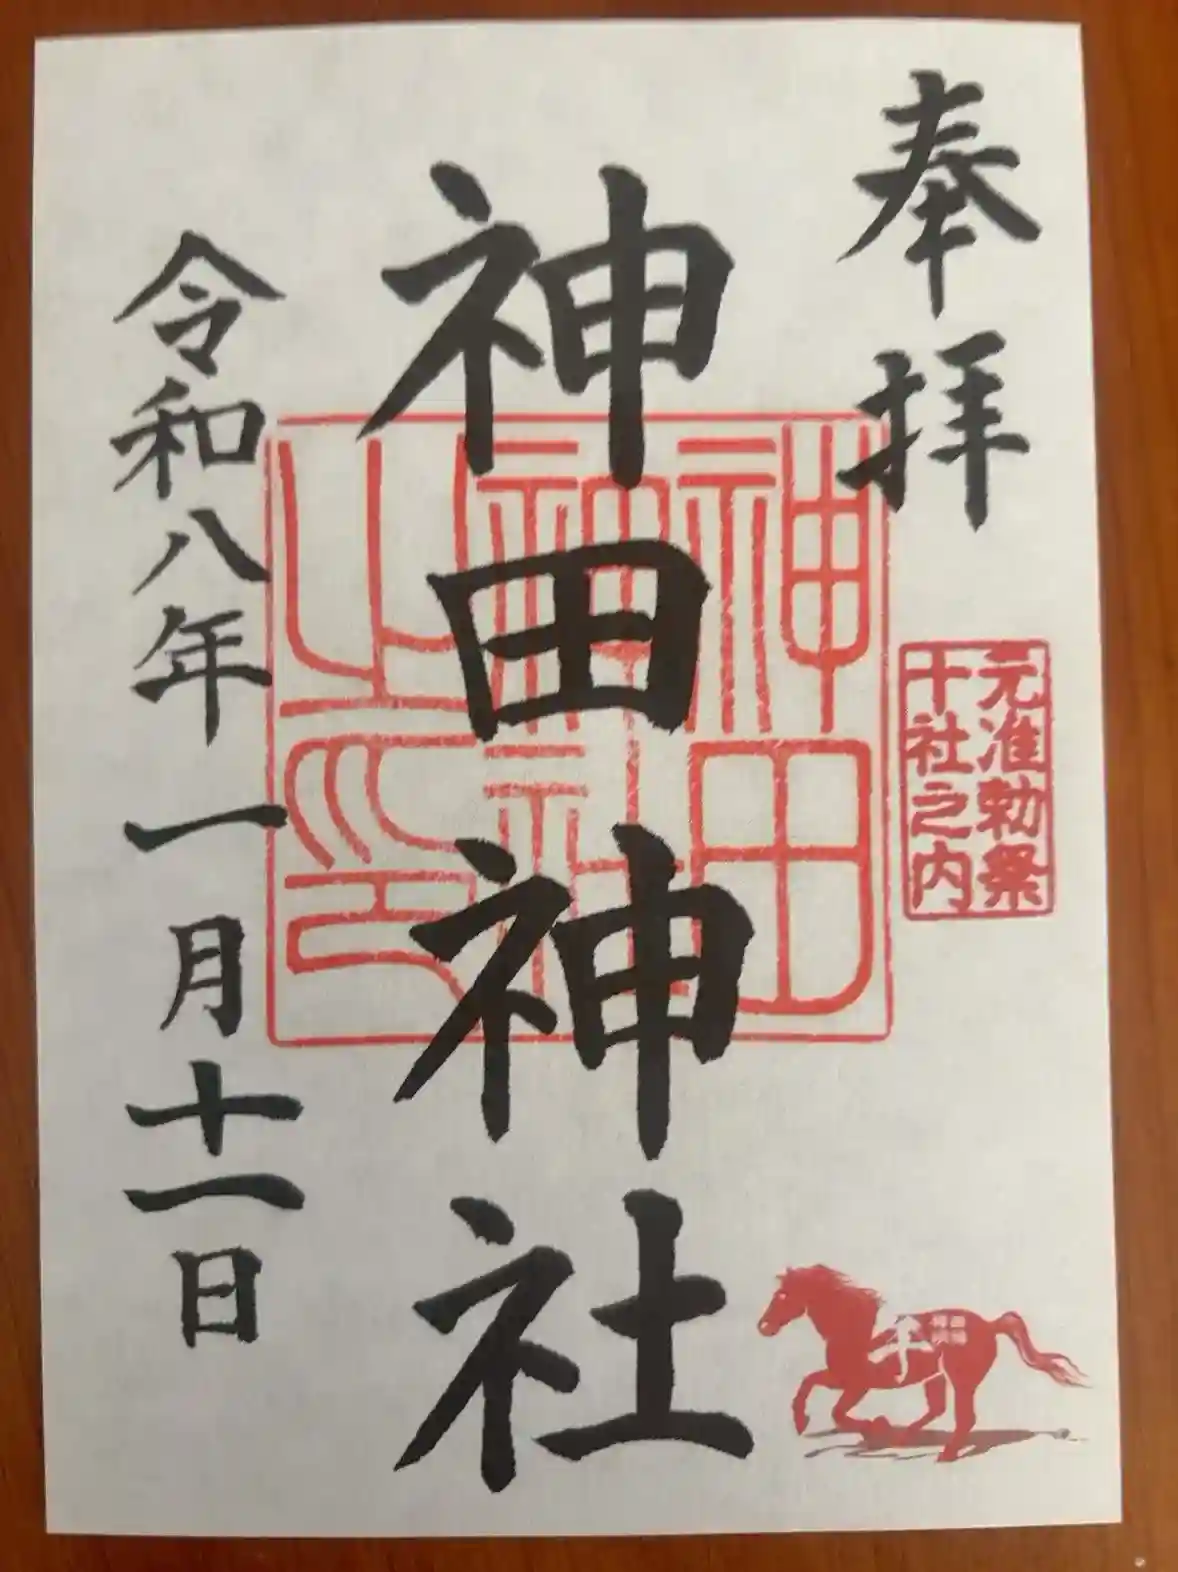 奉拝
元准勅祭
十社之内
神田神社
神田
神社
之印
令和八年一月十一日
午